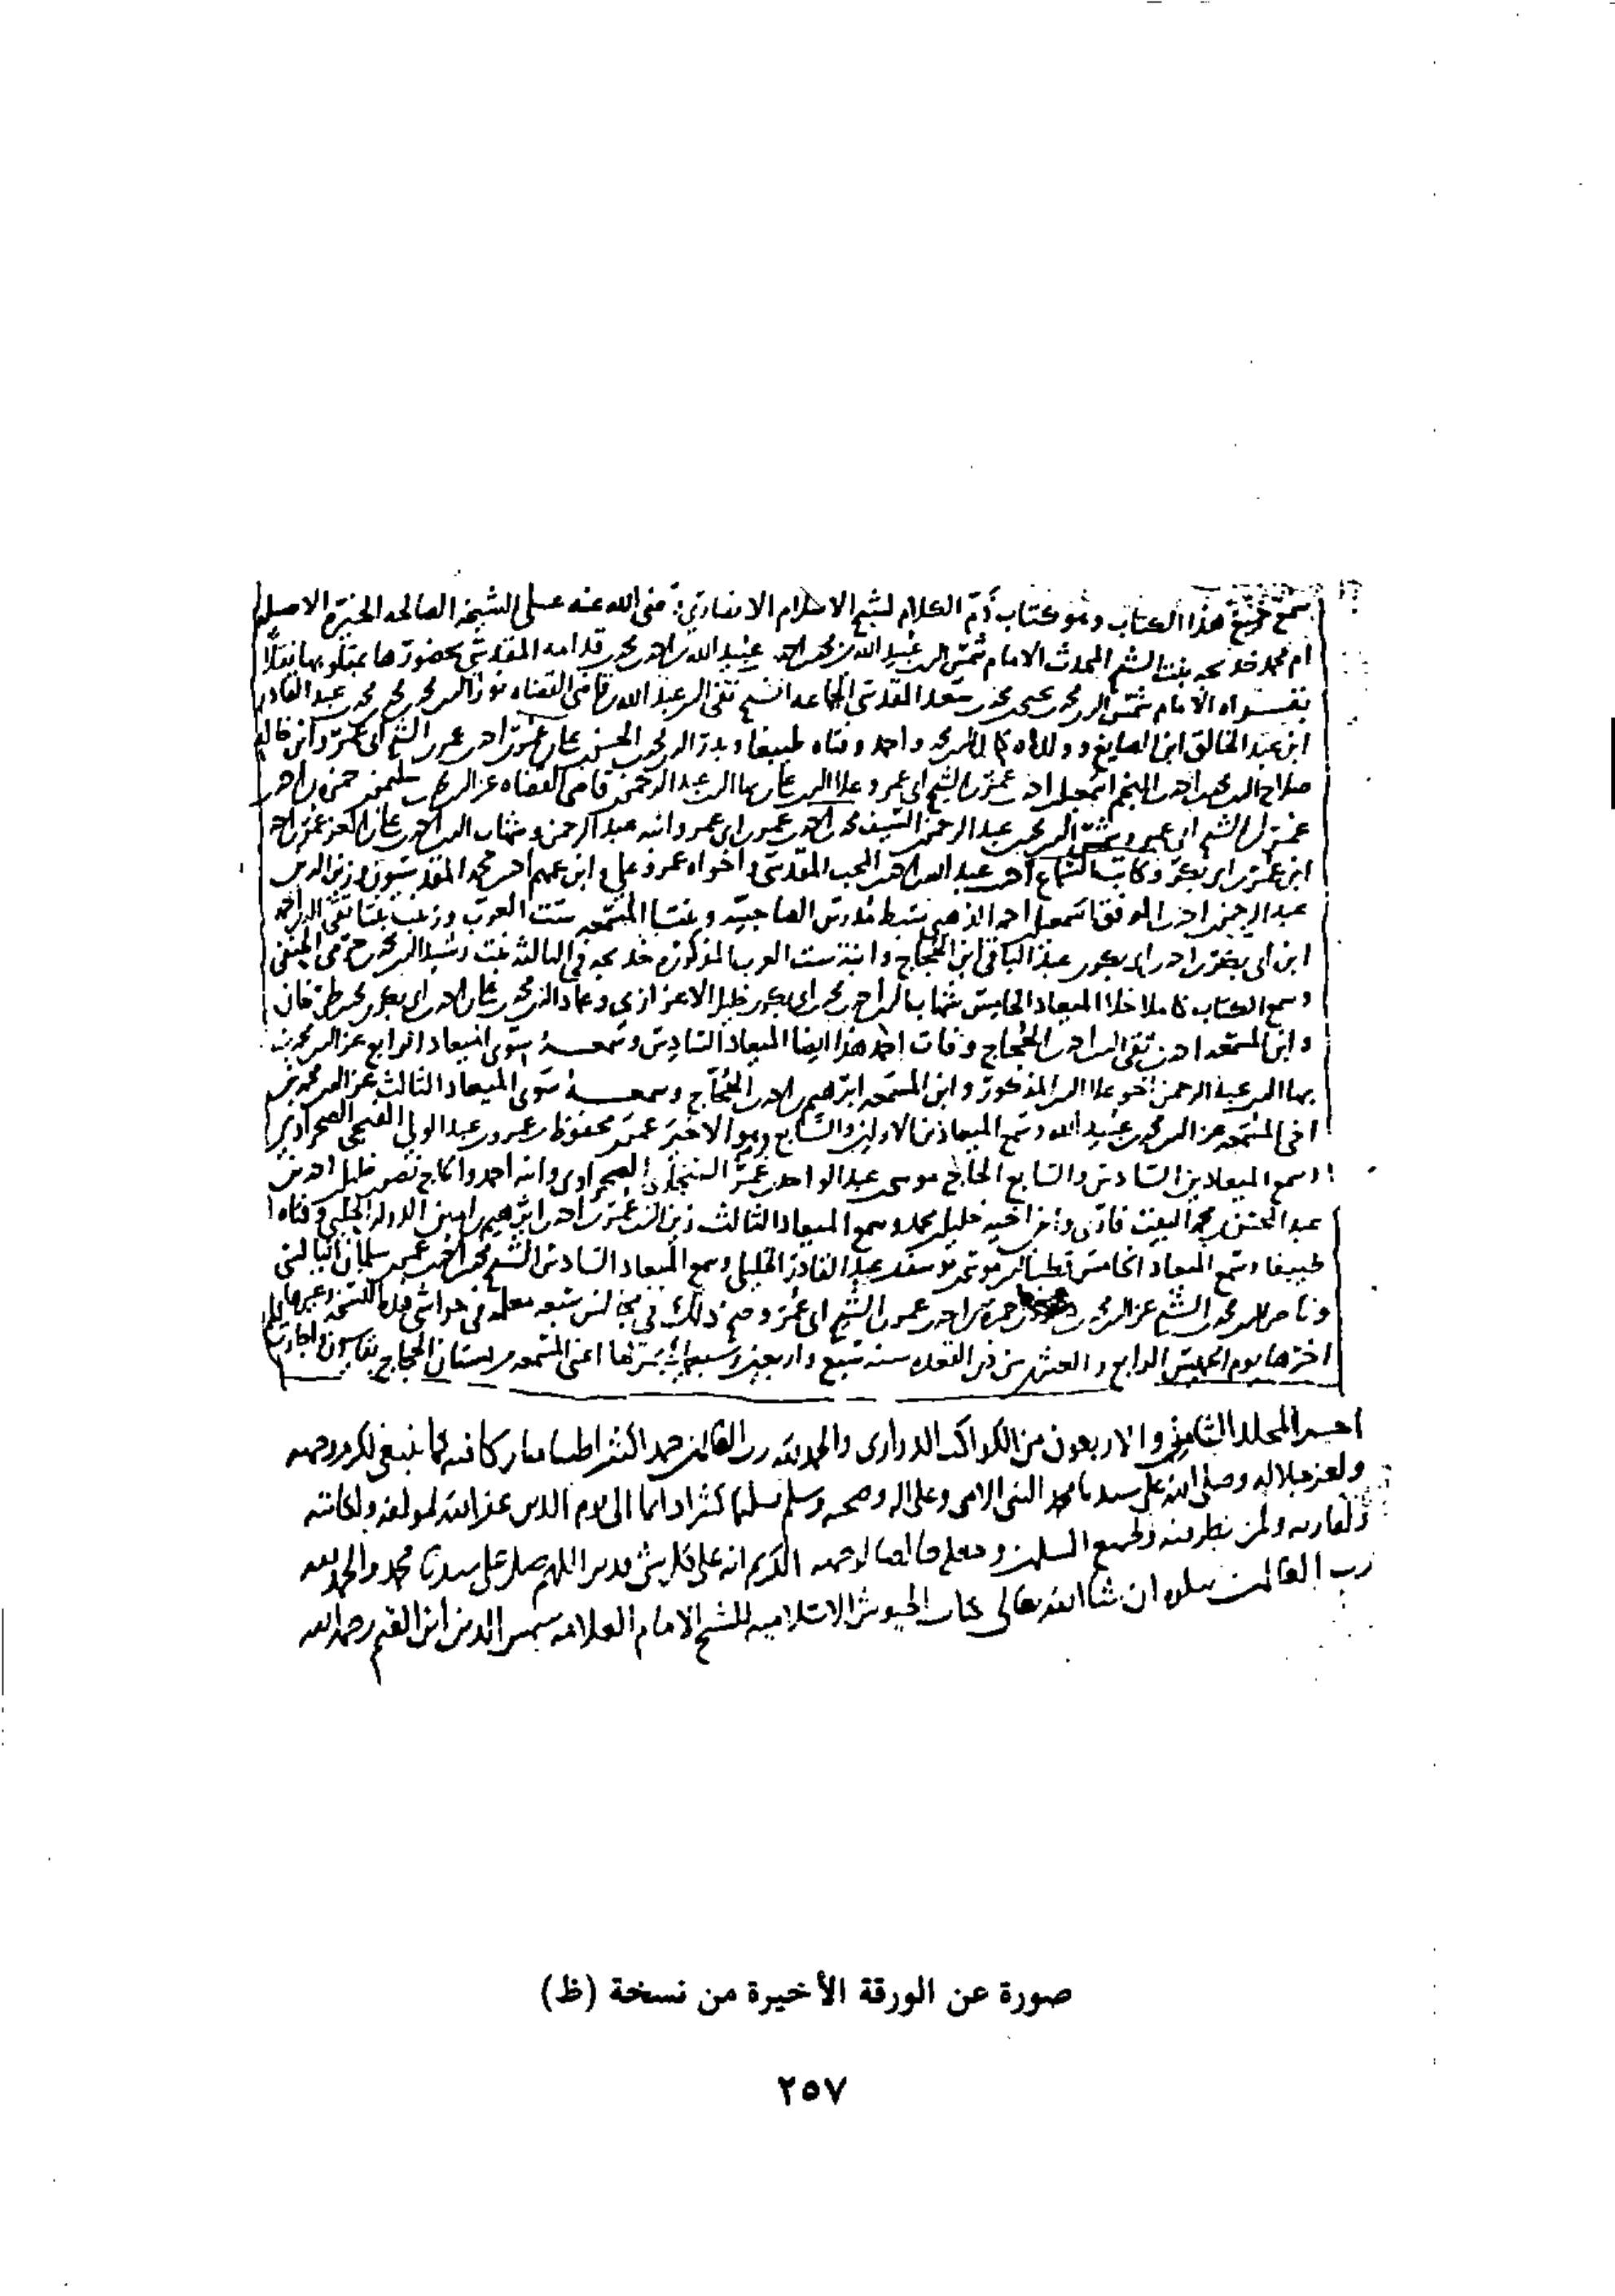 سمع جميع هذا الكتاب وهو كتاب ذم الكلام لشيخ الاسلام الانصاري رضى الله عنه على الشيخة الصالحه الاصيله
ام محمد خديجه بنت الشيخ المحدث الامام شمس الدين عبيد الله بن محمد بن احمد بن عبيد الله بن احمد بن محمد بن قدامه المقدسي بحضورها
الامام شمس الدين محمد بن يحيى بن محمد بن سعد المقدسي الجماعه الشيخ تقي الدين عبد الله بن قاضى القضاه نور الدين محمد بن محمد بن محمد بن عبد القادر
ابن عبد الخالق ابن الصايغ وولداه محمد واحمد وفتاه طيبغا وبدر الدين محمد بن الحسن بن علي بن عمر بن احمد بن عمر بن الشيخ ابى عمر وابن خاله
صلاح الدين محمد بن احمد بن النجم اسمعيل بن احمد بن عمر بن الشيخ ابى عمر وعلا الدين علي بن بها الدين عبد الرحمن بن قاضى القضاه عز الدين محمد بن سليمن بن حمزه بن احمد
عمر بن الشيخ ابى عمر وشمس الدين محمد بن عبد الرحمن السيف محمد بن احمد بن عمر بن ابى عمر وابنه عبد الرحمن وشهاب الدين احمد بن علي العز عمر بن احمد
ابن عمر بن ابى بكر وكاتب السماع احمد بن عبد الله بن احمد بن المحب المقدسى واخواه عمر وعلي وابن عمهم احمد بن محمد المقدسيون وزين الدين
عبد الرحمن بن احمد بن الموفق اسمعيل بن احمد الذهبى سبط مدرس الصاحبيه وبنتا المسمعه ست العرب وزينب بنتا تقي الدين احمد
ابن ابى بكر بن احمد بن ابى بكر بن عبد الباقى ابن الحجاج وابنة ست العرب المذكوره خديجه فى الثالثه بنت رشيد الدين محمد الحنفى
وسمع الكتاب كاملا خلا الميعاد الخامس شهاب الدين احمد بن محمد بن ابى بكر بن خليل الاعزازي وعماد الدين محمد بن علي بن احمد بن ابى بكر بن محمد بن طرخان
وابن المسمعه احمد بن تقى الدين احمد بن الحجاج وفات احمد هذا ايضا الميعاد السادس وسمعه سوى الميعاد الرابع عز الدين محمد بن
بها الدين عبد الرحمن اخو علا الدين المذكور وابن المسمعه ابرهيم بن احمد بن الحجاج وسمعه سوى الميعاد الثالث عز الدين محمد بن
اخى المسمعه عز الدين محمد بن عبيد الله وسمع الميعادين الاولين والسابع وهو الاخير عمر بن محفوظ بن عمر بن عبد الولي الصحراوي
وسمع الميعادين السادس والسابع الحاج موسى بن عبد الواحد بن عمر الصحراوى وابنه احمد والحاج نصر بن خليل بن احمد بن
عبد المحسن وابن اخيه خليل بن محمد وسمع الميعاد الثالث زين الدين عمر بن احمد بن ابرهيم بن امين الدوله الحلبي وفتاه
طيبغا وسمع الميعاد الخامس عبد القادر الخليلي وسمع الميعاد السادس الشيخ محمد بن احمد بن عمر بن سلمان البالسى
وناصر الدين محمد بن الشيخ عز الدين محمد بن حمزه بن احمد بن عمر بن الشيخ ابى عمر وصح ذلك في مجالس سبعه معلمه فى حواشى هذه النسخه وغيرها
اخرها يوم الخميس الرابع والعشرين من ذى القعده سنه تسع واربعين وسبعمايه اعنى المسمعه ببستان الحجاج بقاسيون واجازت
اخر المجلد الثامن والاربعون من الكواكب الدرارى والحمد لله رب العالمين حمدا كثيرا طيبا مباركا فيه كما ينبغى لكرم وجهه
ولعز جلاله وصلى الله على سيدنا محمد النبى الامى وعلى اله وصحبه وسلم تسليما كثيرا دايما الى يوم الدين غفر الله لمولفه ولكاتبه
ولقاريه ولمن نظر فيه ولجميع المسلمين وجعله خالصا لوجهه الكريم انه على كل شى قدير اللهم صل على سيدنا محمد والحمد لله
رب العالمين يتلوه ان شا الله تعالى كتاب الجيوش الاسلاميه للشيخ الامام العلامه شمس الدين ابن القيم رحمه الله
صورة عن الورقة الأخيرة من نسخة (ظ)
٢٥٧